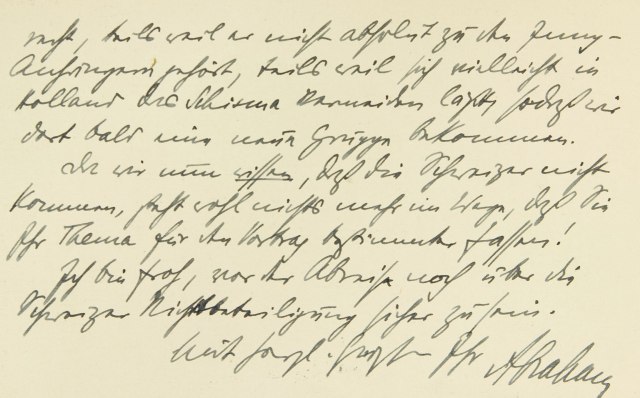 recht, teils weil er nicht absolut zu den Jung-
Anhängern gehört, teils weil sich vielleicht in
Holland das Schisma vermeiden läßt, sodaß wir
dort bald eine neue Gruppe bekommen.
Da wir nun wissen, daß die Schweizer nicht
kommen, steht wohl nichts mehr im Wege, daß Sie
Ihr Thema für den Vortrag bestimmter fassen!
Ich bin froh, vor der Abreise noch über die
Schweizer Nichtbeteiligung sicher zu sein.
Mit herzl. Gruß Ihr Abraham